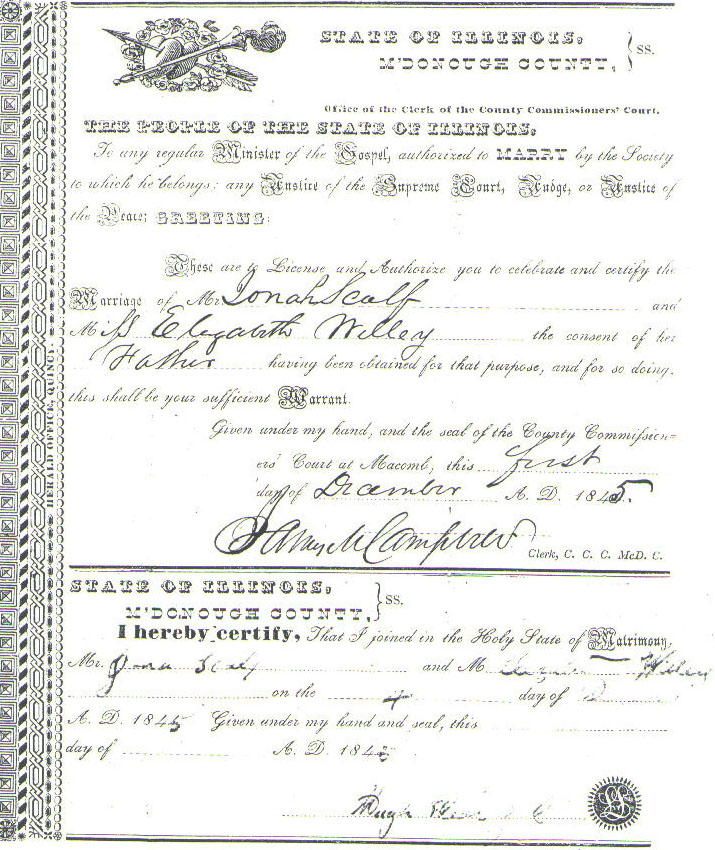 STATE OF ILLINOIS,
M'DONOUGH COUNTY, } SS.
Office of the Clerk of the County Commissioners' Court.
THE PEOPLE OF THE STATE OF ILLINOIS.
To any regular Minister of the Gospel, authorized to MARRY by the Society
to which he belongs: any Justice of the Supreme Court, Judge, or Justice of
the Peace; GREETING:
These are to License and Authorize you to celebrate and certify the
Marriage of Mr. Jonah Scalf and
Miss Elizabeth Willey the consent of her
Father having been obtained for that purpose, and for so doing,
this shall be your sufficient Warrant.
Given under my hand, and the seal of the County Commission-
ers' Court at Macomb, this first
day of December A. D. 1845.
Campbell
Clerk, C. C. C. McD. C.
HERALD OFFICE, QUINCY.
STATE OF ILLINOIS,
M'DONOUGH COUNTY, } SS.
I hereby certify, That I joined in the Holy State of Matrimony,
Mr. Jona Scalf and M Willey
on the 4 day of
A. D. 1845 Given under my hand and seal, this
day of A. D. 184
Hugh
LS